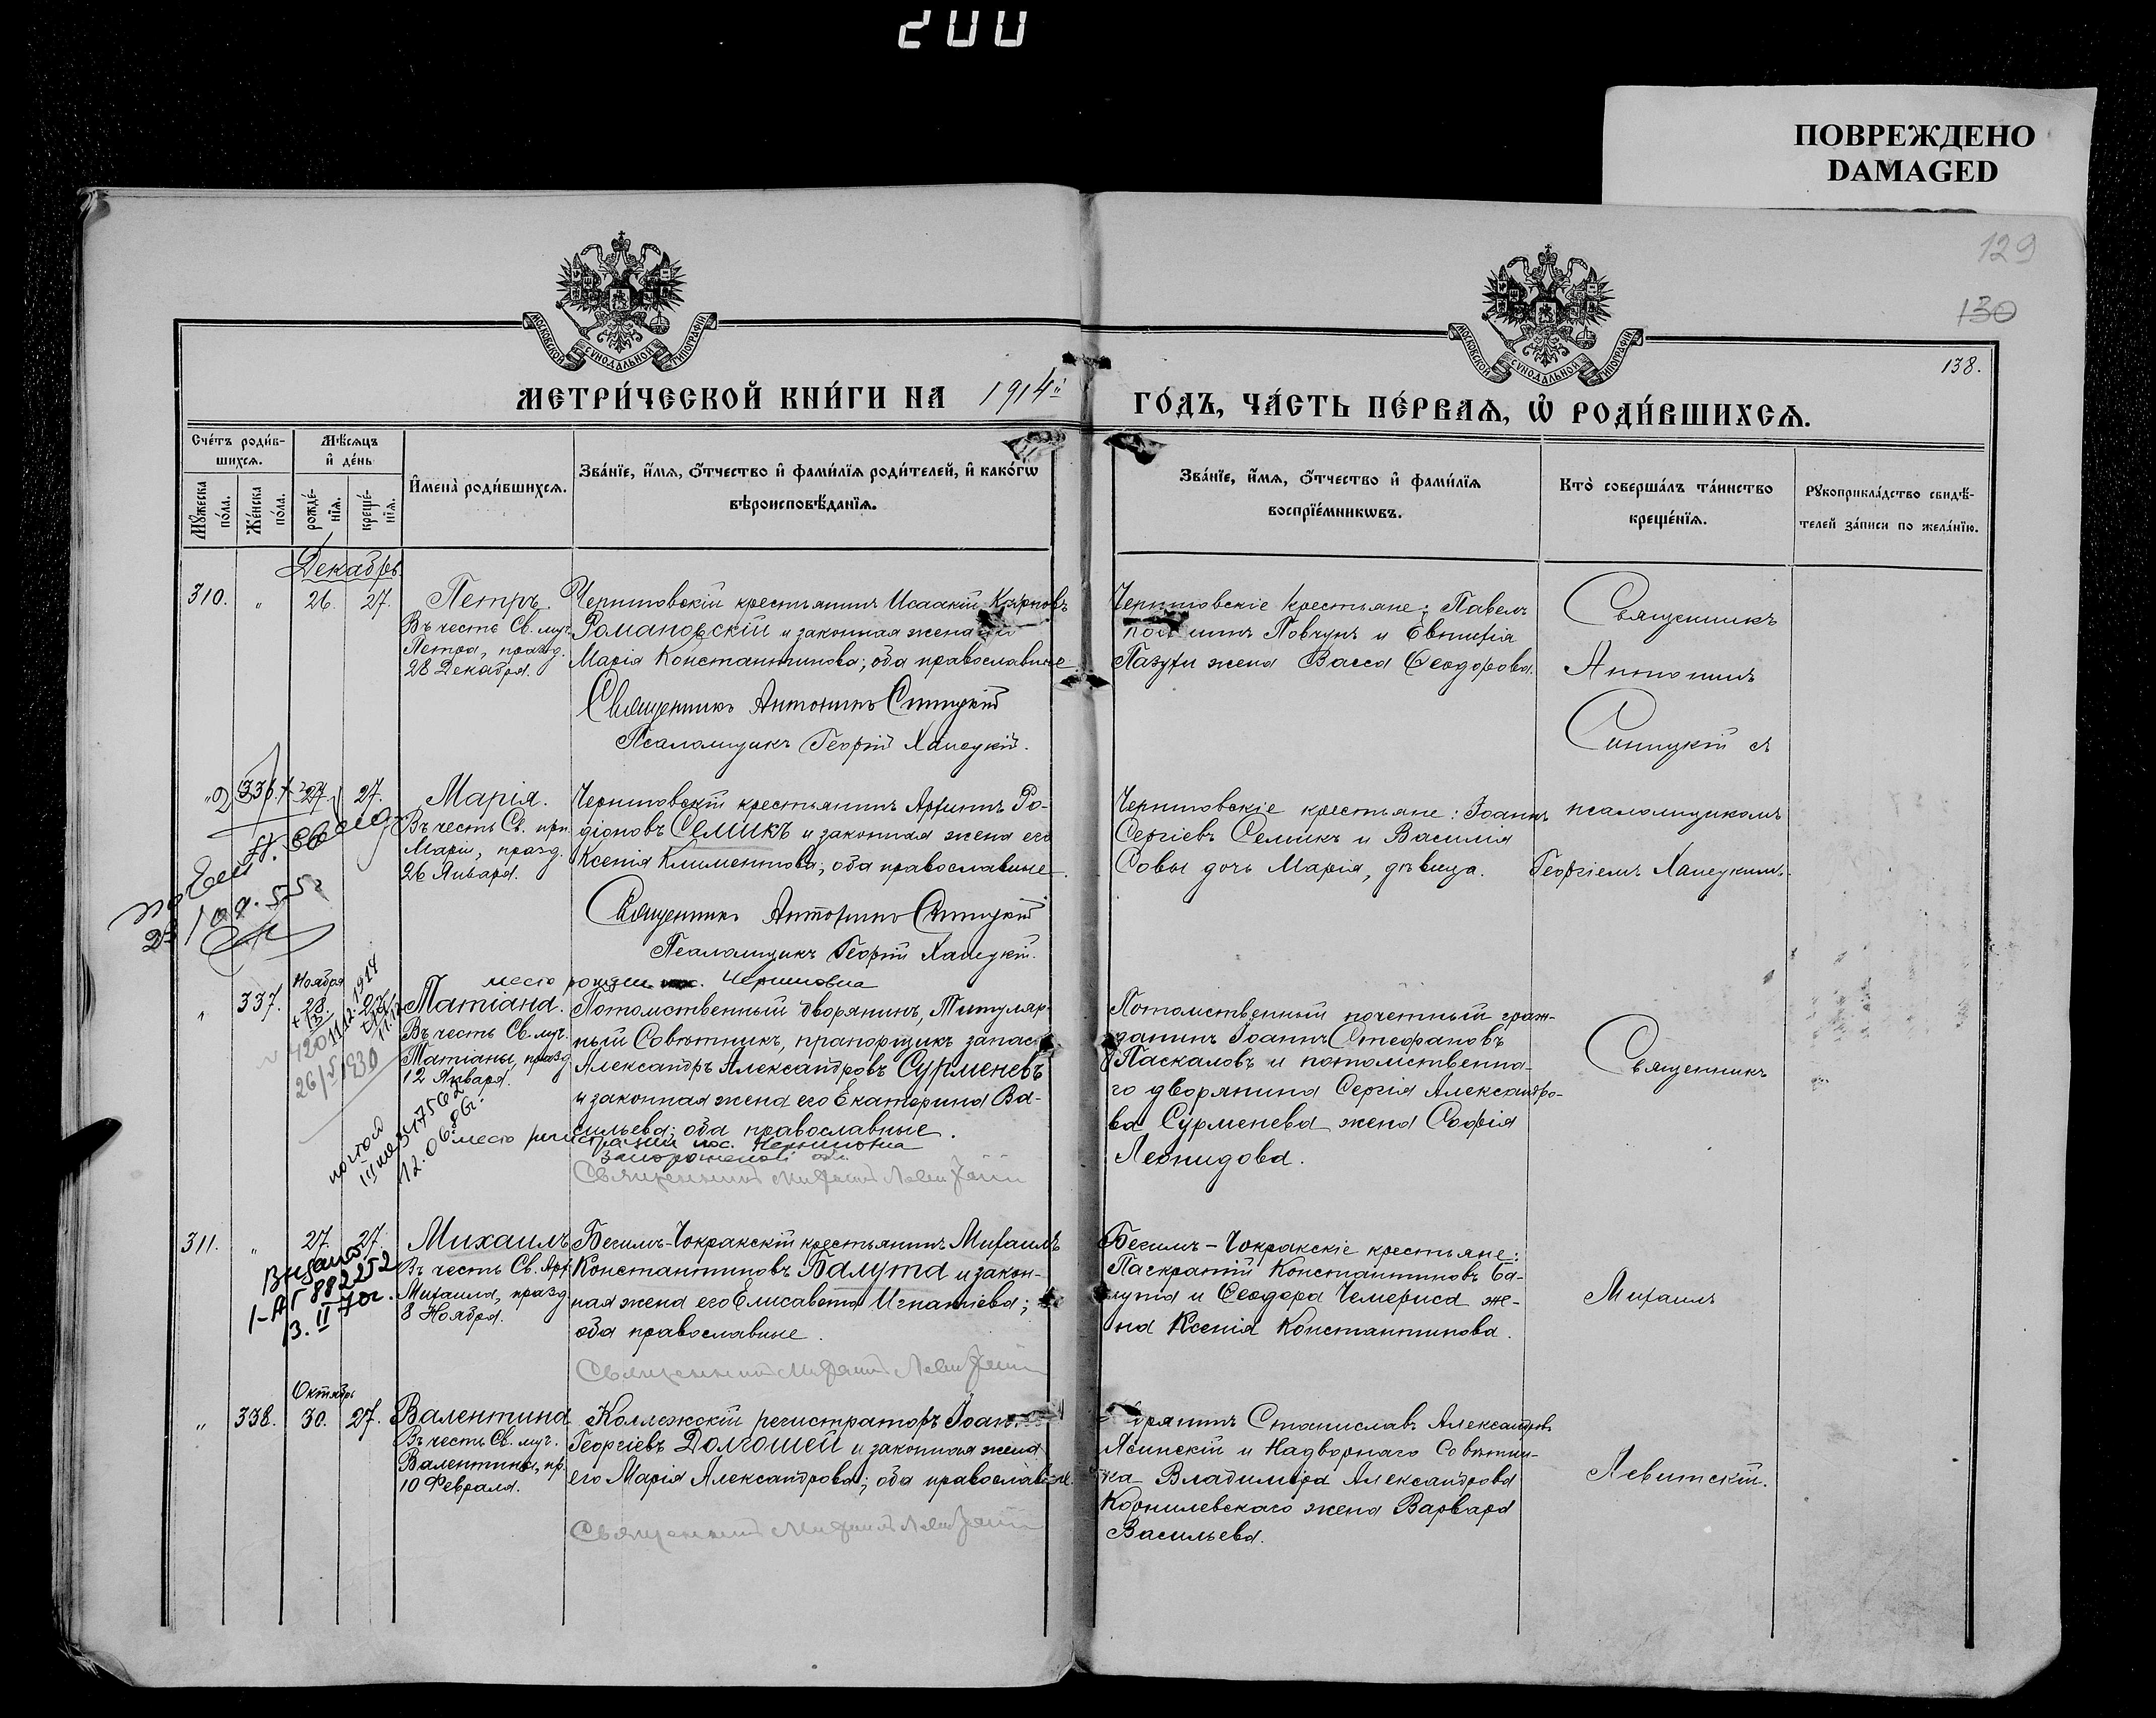 200
ПОВРЕЖДЕНО
DAMAGED
129
130
138.
МОСКОВСКОЙ СѴНОДАЛЬНОЙ ТИПОГРАФІИ
МОСКОВСКОЙ СѴНОДАЛЬНОЙ ТИПОГРАФІИ
МЕТРИ́ЧЕСКОЙ КНИ́ГИ НА 1914й
ГО́ДЪ, ЧА́СТЬ ПЕ́РВАѦ, Ѡ҆ РОДИ́ВШИХСѦ.
Сче́тъ роди́в-
шихсѧ.
Мꙋ́жеска по́ла.
Же́нска по́ла.
Мѣ́сѧцъ
и҆ де́нь
рожде́-
нїѧ.
креще́-
нїѧ.
И҆мена̀ роди́вшихсѧ.
Зва́нїе, и҆́мѧ, ѻ҆́тчество и҆ фами́лїѧ роди́телей, и҆ како́гѡ
вѣроисповѣ́данїѧ.
Зва́нїе, и҆́мѧ, ѻ҆́тчество и҆ фами́лїѧ
воспрїе́мникѡвъ.
Кто̀ соверша́лъ та́инство
креще́нїѧ.
Рꙋкоприкла́дство свидѣ́-
телей за́писи по жела́нїю.
Декабрь.
310. " 26. 27. Петръ.
Въ честь Св. муч.
Петра, празд.
28 Декабря.
Черниговскій крестьянинъ Исаакій
Романовскій и законная жена
Марія Константинова; оба православные.
Священникъ Антонинъ Синицкій
Псаломщикъ Георгій Ханецкій.
Черниговскіе крестьяне: Павелъ
Повчунъ и Евтихія
жена Васса Ѳеодорова.
Священникъ
Антонинъ
Синицкій съ
" 336. 27. 27. Марія.
Въ честь Св. прп.
Маріи, празд.
26 Января.
Черниговскій крестьянинъ Арѳинъ Ро-
діоновъ Семикъ и законная жена его
Ксенія Климентова; оба православные.
Священникъ Антонинъ Синицкій
Псаломщикъ Георгій Ханецкій.
Черниговскіе крестьяне: Іоаннъ
Сергіевъ Семикъ и Василія
Совы дочь Марія, дѣвица.
псаломщикомъ
Георгіемъ Ханецкимъ.
место рожден. Черниговка
Ноября
" 337. 28. Татіана.
Въ честь Св. муч.
Татіаны, празд.
12 Января.
11.12.1914
26/5 1930
Потомственный дворянинъ, Титуляр-
ный Совѣтникъ, прапорщикъ запаса
Александръ Александровъ Сурменевъ
и законная жена его Екатерина Ва-
сильева; оба православные.
место регистрации пос. Черниговка
Запорожской обл.
Священникъ Михаилъ Левитскій
Потомственный почетный граж-
данинъ Іоаннъ Стефановъ
Паскаловъ и потомственна-
го дворянина Сергія Александро-
ва Сурменева жена Софія
Леонидова.
Священникъ
311. " 27. 27. Михаилъ
Въ честь Св. Арх.
Михаила, празд.
8 Ноября.
Видано
I-АГ 882252
13. II 70г.
Бегимъ-Чокракскій крестьянинъ Михаилъ
Константиновъ Балута и закон-
ная жена его Елисавета Игнатіева;
оба православные.
Священникъ Михаилъ Левитскій
Бегимъ-Чокракскіе крестьяне:
Панкратій Константиновъ Ба-
лута и Ѳеодора Чемериса же-
на Ксенія Константинова.
Михаилъ
Октябрь
" 338. 30. 27. Валентина
Въ честь Св. муч.
Валентины, пр.
10 Февраля.
Коллежскій регистраторъ Іоан
Георгіевъ Долгошей и законная жена
его Марія Александрова; оба православные.
Священникъ Михаилъ Левитскій
Станиславъ Александровъ
Ясинскій и Надворнаго Совѣтни-
ка Владиміра Александрова
Корнилевскаго жена Варвара
Васильева.
Левитскій.